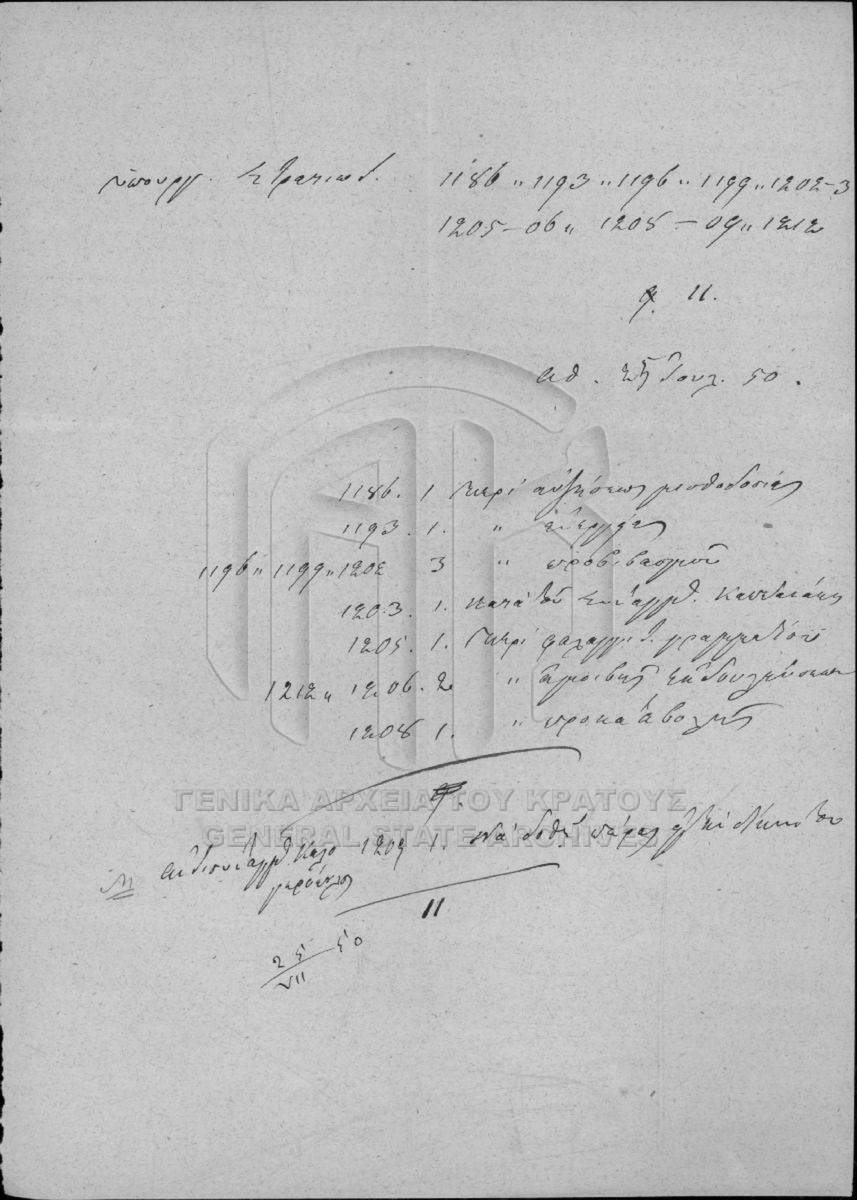 Υπουργ. Στρατιωτ. 1186 " 1193 " 1196 " 1199 " 1202-3
1205-06 " 1208-09 " 1212
φ. 11.
Αθ. 25 Ιουλ. 50.
1186. 1 Περί αυξήσεως μισθοδοσίας
1193. 1. "
1196 " 1199 " 1202 3 " προβιβασμού
1203. 1. Κατά του
1205. 1. Περί φαλαγγιτ. γραμματίου
1212 " 1206. 2 " αμοιβής εκδουλεύσεων
1208 1. " προκαταβολής
ΓΕΝΙΚΑ ΑΡΧΕΙΑ ΤΟΥ ΚΡΑΤΟΥΣ
GENERAL STATE ARCHIVES
1209 1. Να δοθή πέρας
11
25/VII 50